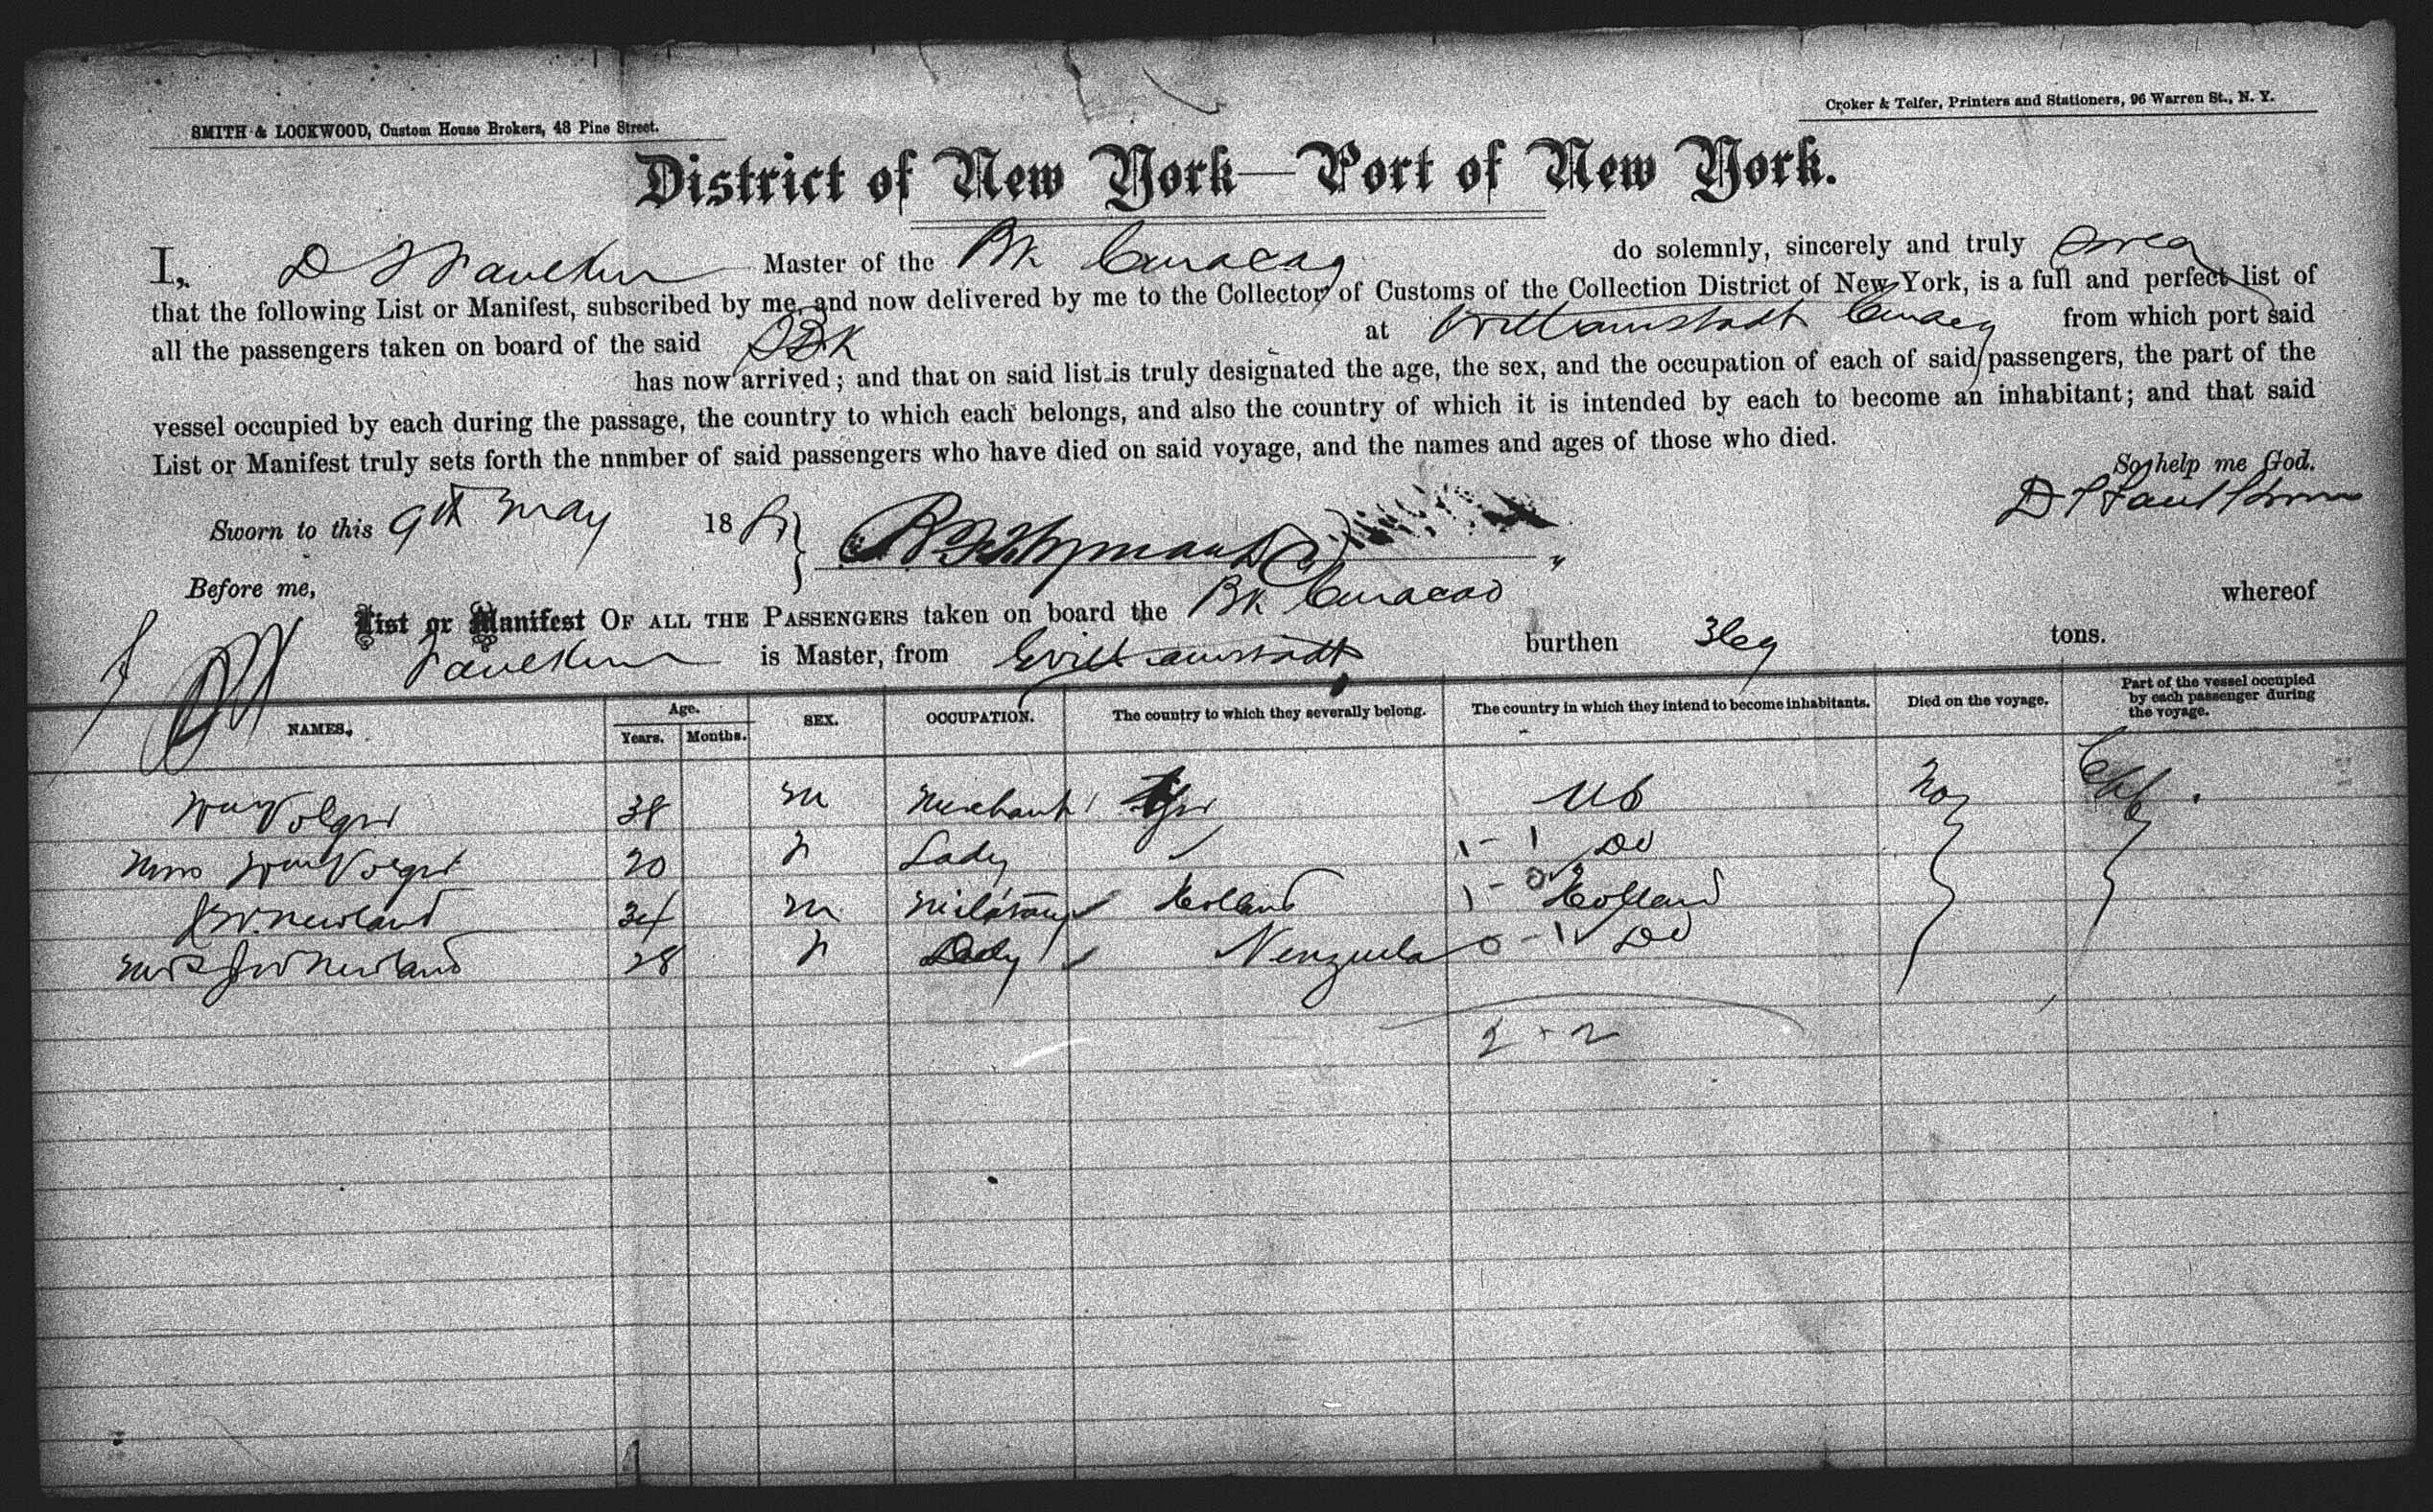 SMITH & LOCKWOOD, Custom House Brokers, 48 Pine Street.
Croker & Telfer, Printers and Stationers, 96 Warren St., N. Y.
District of New York—Port of New York.
I, D Faulkner Master of the Bk Curacao do solemnly, sincerely and truly
that the following List or Manifest, subscribed by me, and now delivered by me to the Collector of Customs of the Collection District of New York, is a full and perfect list of
all the passengers taken on board of the said Bk at Willamstadt Curacao from which port said
has now arrived; and that on said list is truly designated the age, the sex, and the occupation of each of said passengers, the part of the
vessel occupied by each during the passage, the country to which each belongs, and also the country of which it is intended by each to become an inhabitant; and that said
List or Manifest truly sets forth the nnmber of said passengers who have died on said voyage, and the names and ages of those who died.
So help me God.
Sworn to this 9th May 18
Before me,
List or Manifest OF ALL THE PASSENGERS taken on board the Bk Curacao whereof
Faulkner is Master, from Willamstadt burthen tons.
NAMES. Age. Years. Months. SEX. OCCUPATION. The country to which they severally belong. The country in which they intend to become inhabitants. Died on the voyage. Part of the vessel occupied by each passenger during the voyage.
Wm Volger 38 M Merchant US No
Mrs Wm Volger 20 F Lady 1 - 1 Do
J W. Newland 34 M Military Holland 1 - 0 Holland
Mrs J W Newland 28 F Lady Venzuela 0 - 1 Do
2 + 2